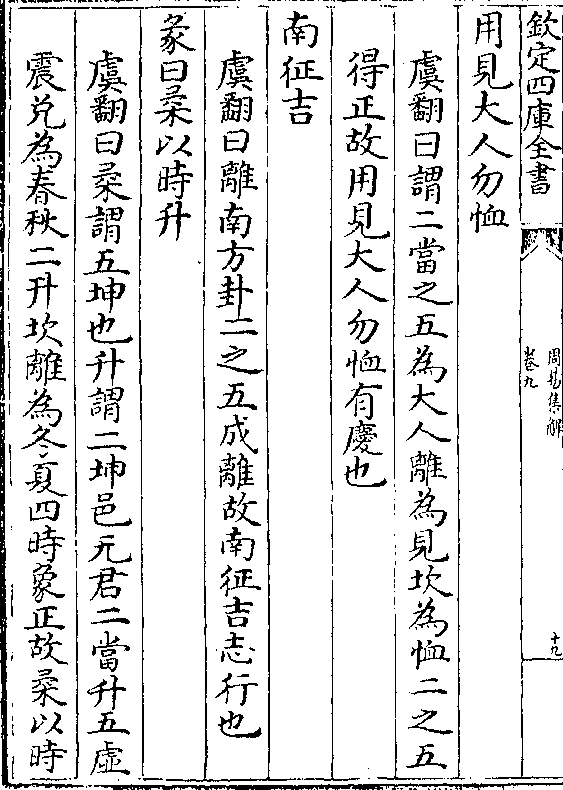 欽定四庫全書
周易集解
卷九
十九
用見大人勿恤
虞翻曰謂二當之五為大人離為見坎為恤二之五
得正故用見大人勿恤有慶也
南征吉
虞翻曰離南方卦二之五成離故南征吉志行也
彖曰柔以時升
虞翻曰柔謂五坤也升謂二坤邑无君二當升五虛
震兌為春秋二升坎離為冬夏四時象正故柔以時